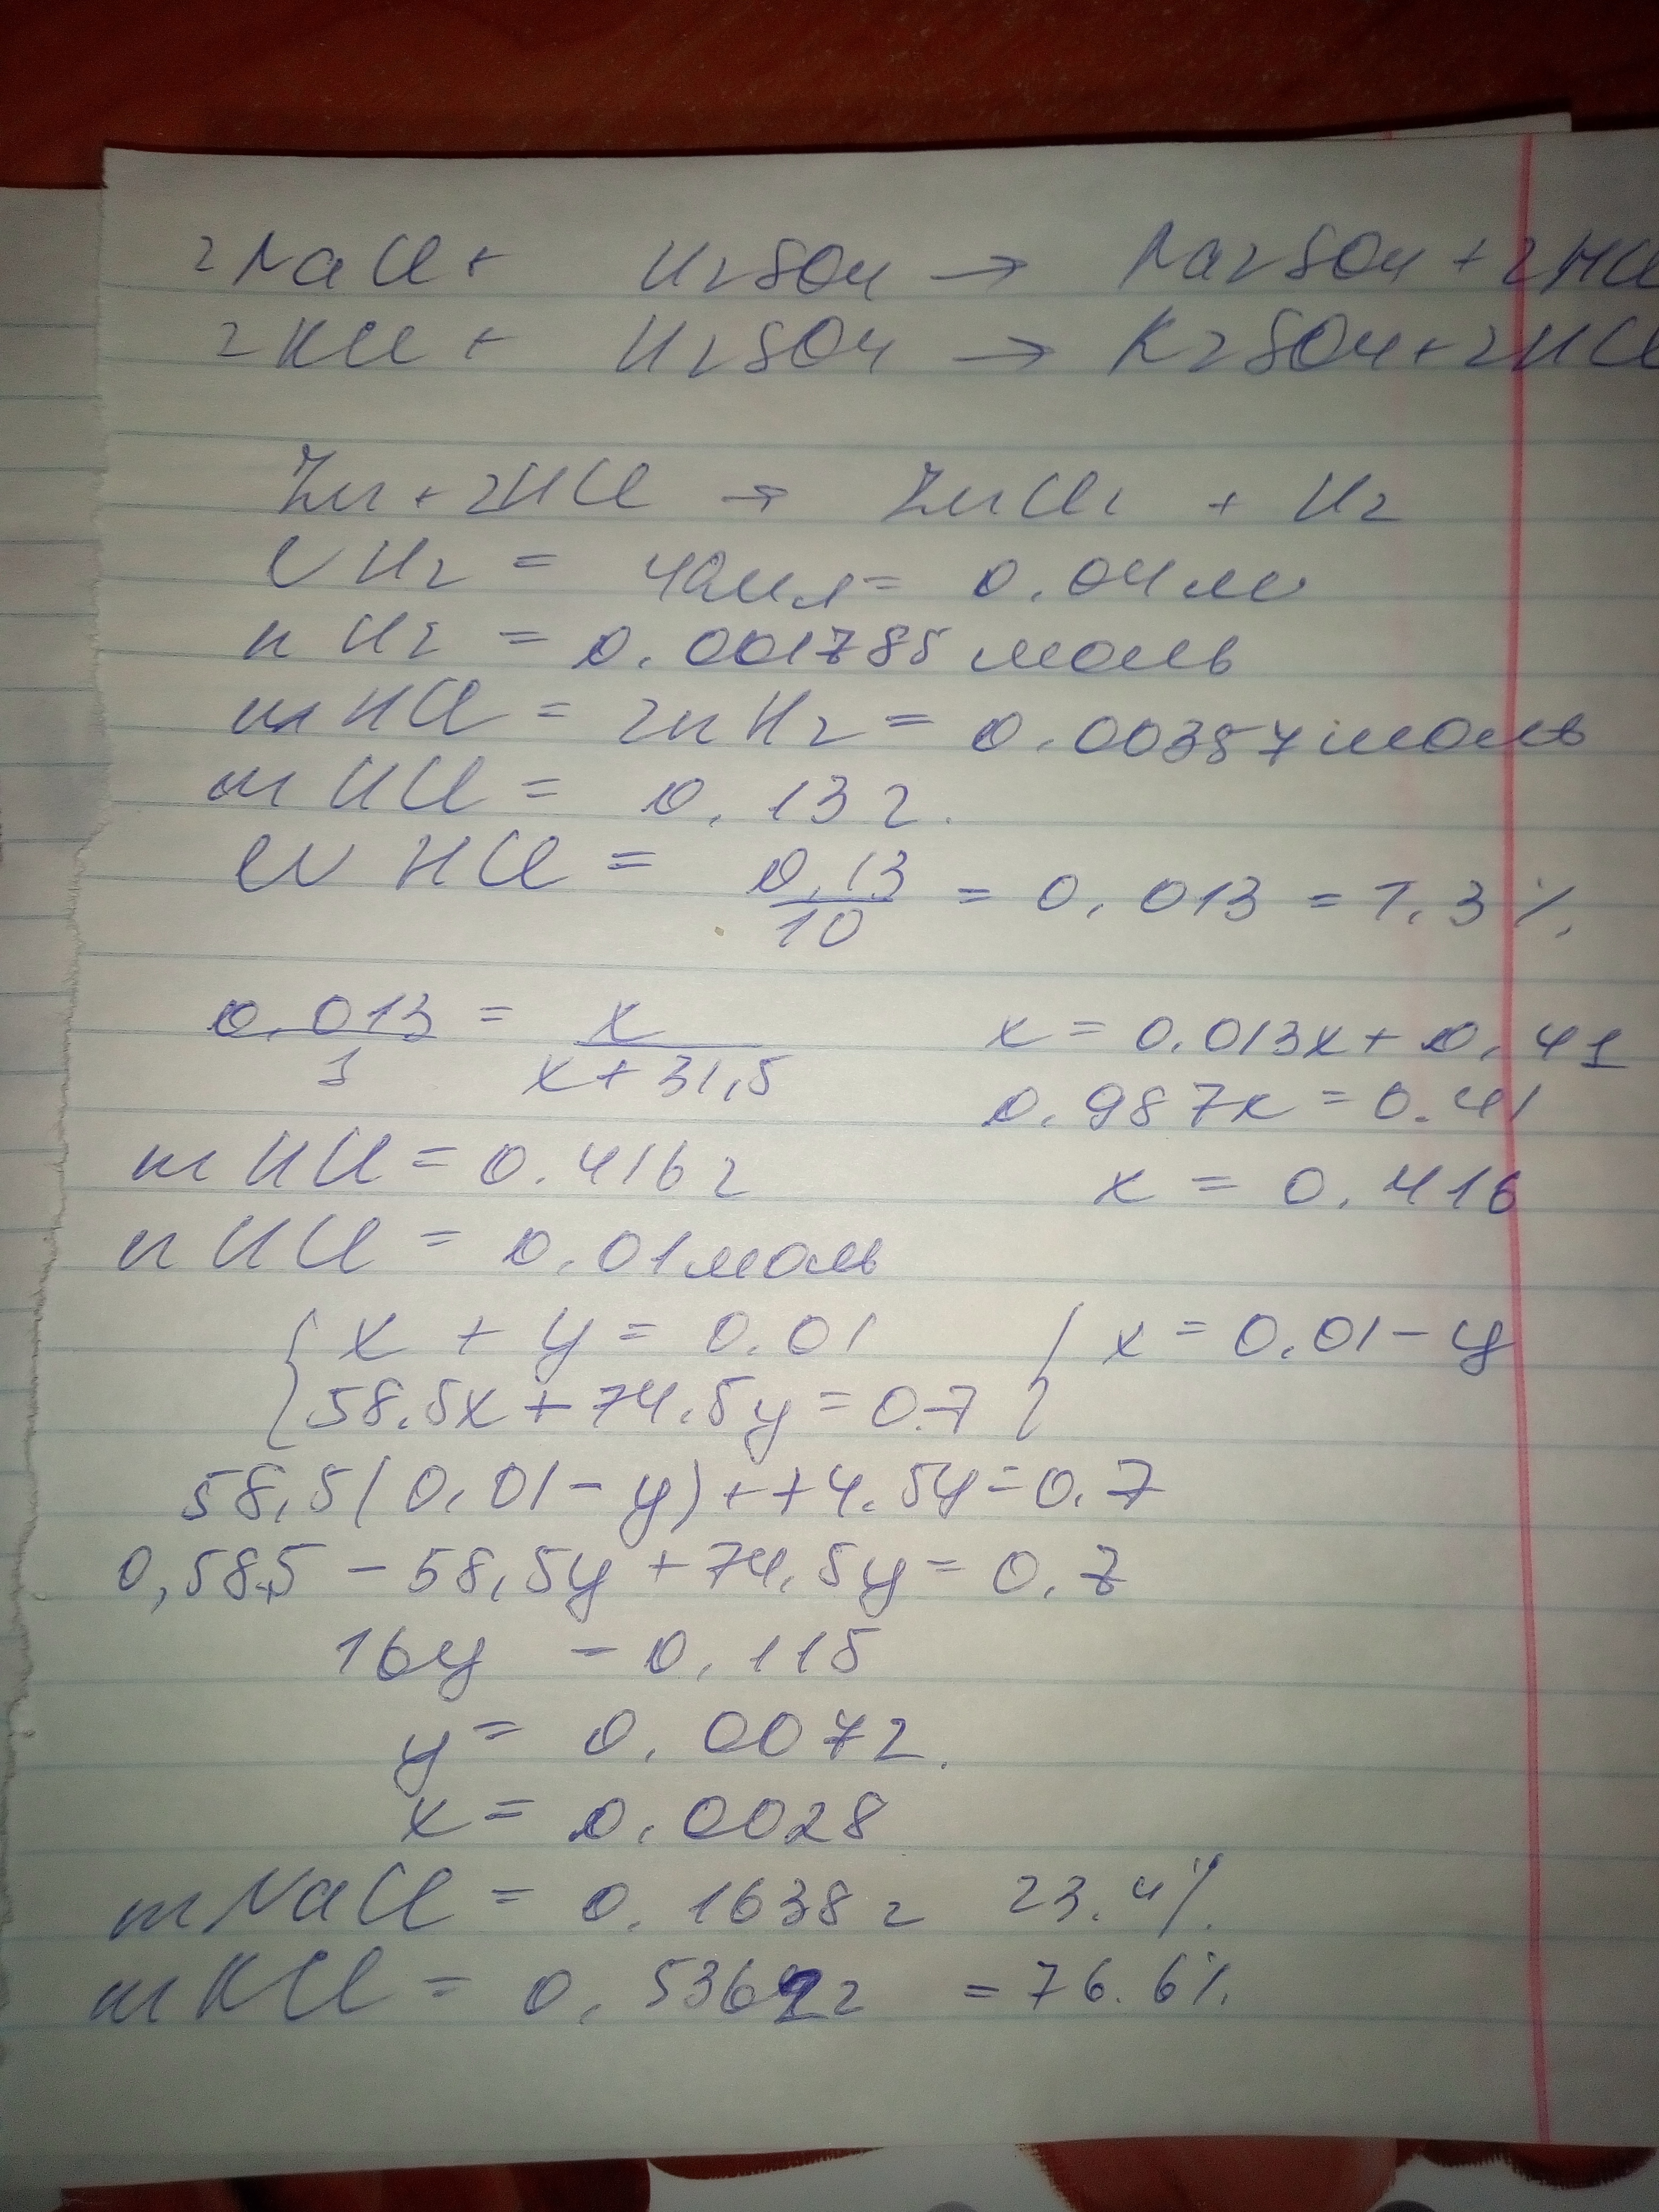 2NaCl + H2SO4 → Na2SO4 + 2HCl
2KCl + H2SO4 → K2SO4 + 2HCl
Zn + 2HCl → ZnCl2 + H2
V H2 = 40мл = 0.04л
n H2 = 0.001785 моль
m HCl = 2n H2 = 0.00357 моль
m HCl = 0.13 г.
W HCl = 0,13/10 = 0,013 = 1.3%.
0.013/1 = x/x+31,5 x = 0.013x + 0.41
0.987x = 0.41
m HCl = 0.416 г x = 0.416
n HCl = 0.01 моль
{ x + y = 0.01 { x = 0.01 - y
{ 58.5x + 74.5y = 0.7
58,5(0,01 - y) + 74.5y = 0.7
0,585 - 58,5y + 74.5y = 0.7
16y = 0,115
y = 0.0072.
x = 0.0028
m NaCl = 0.1638 г 23.4%.
m KCl = 0.5362 г = 76.6%.